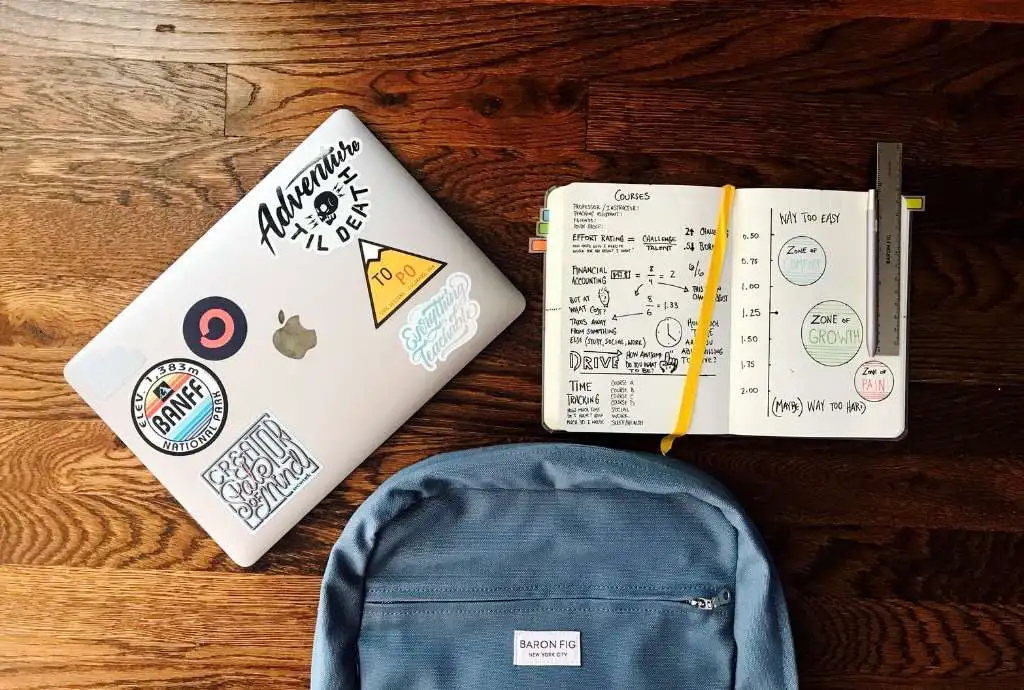 Adventure
TIL DEATH
TO PO
Everything
Teachable
ELEV. 1,383m
BANFF
NATIONAL PARK
CREATOR
is a
State
of Mind
COURSES
PROFESSOR / INSTRUCTOR:
TEACHING ASSISTANT:
EFFORT RATING = CHALLENGE
TALENT
2↑ CHALL
.5↓ BOR
FINANCIAL
ACCOUNTING
8
4
= 2
6/6
BUT AT
WHAT COST?
8
6
= 1.33
TAKES AWAY
FROM SOMETHING
ELSE (STUDY, SOCIAL, WORK)
DRIVE
HOW AWESOME
DO YOU WANT
TO BE?
TIME
TRACKING
COURSE A
COURSE B
COURSE C
COURSE D
SOCIAL
WORK
SLEEP/HEALTH
WAY TOO EASY
0.50
0.75
1.00
1.25
1.50
1.75
2.00
ZONE OF
COMFORT
ZONE OF
GROWTH
ZONE OF
PAIN
(MAYBE) WAY TOO HARD
BARON FIG
BARON FIG
NEW YORK CITY